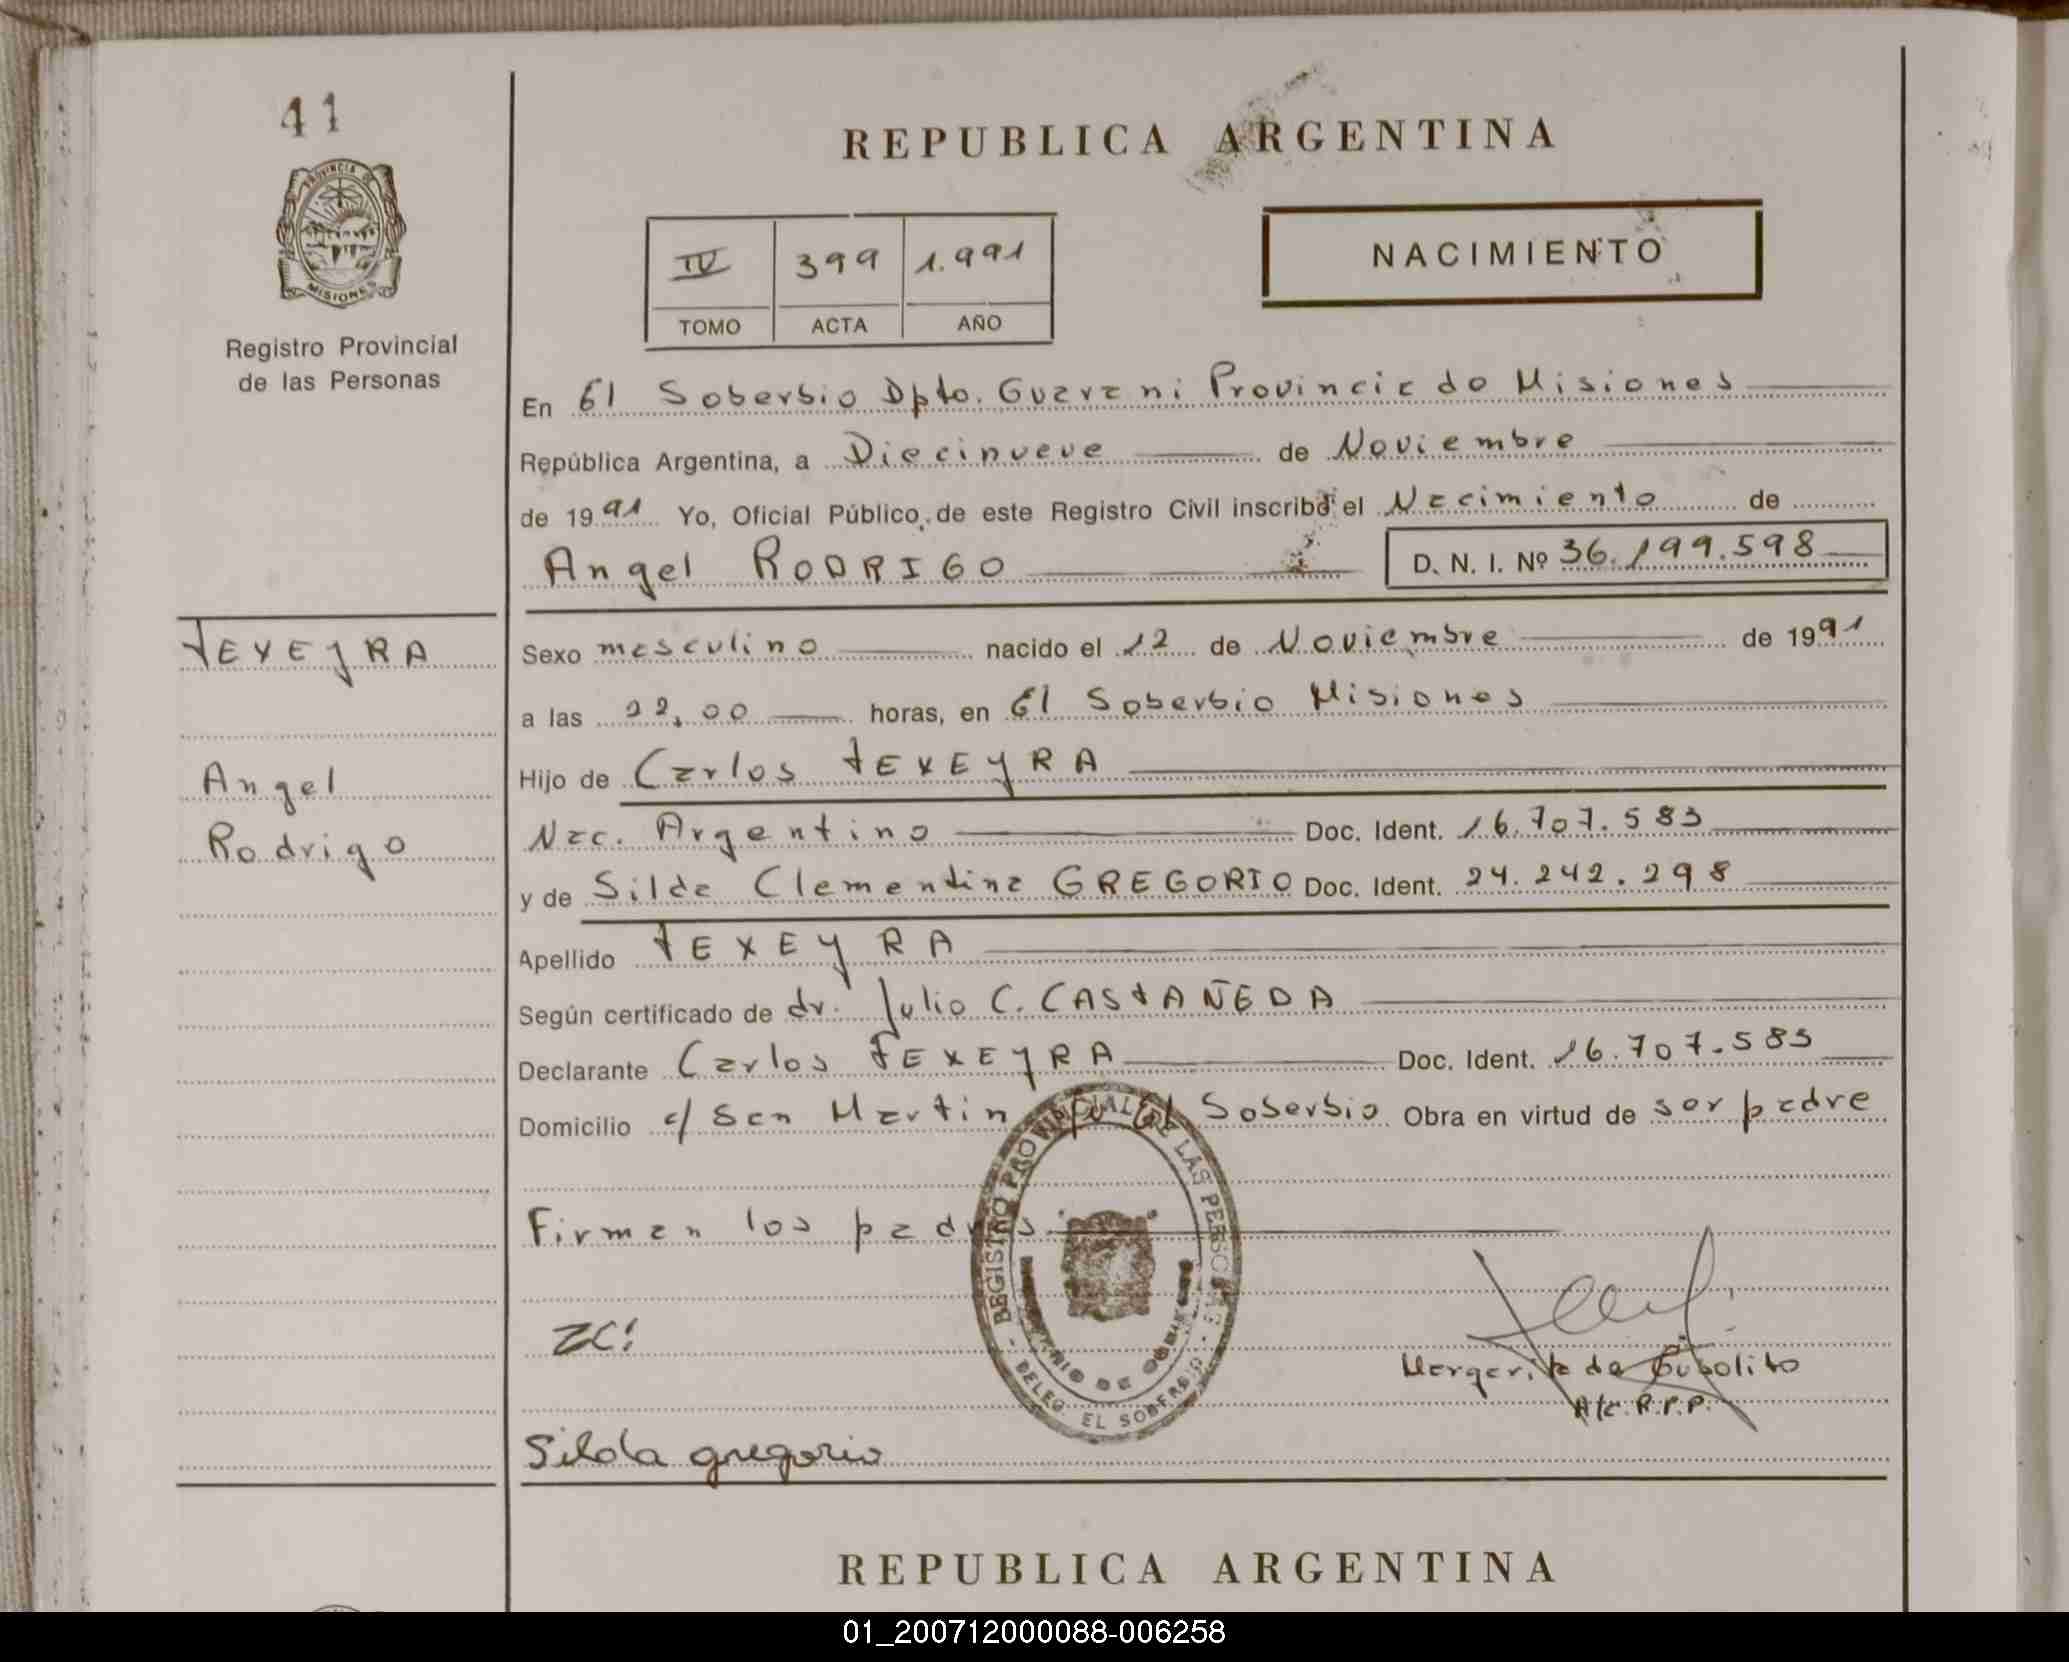 41
PROVINCIA DE
MISIONES
Registro Provincial
de las Personas
TEXEYRA
Angel
Rodrigo
REPUBLICA ARGENTINA
IV 399 1.991
TOMO ACTA AÑO
NACIMIENTO
En El Soberbio Dpto. Guarani Provincia de Misiones
República Argentina, a Diecinueve de Noviembre
de 1991 Yo, Oficial Público de este Registro Civil inscribo el Nacimiento de
Angel RODRIGO D. N. I. Nº 36.199.598
Sexo masculino nacido el 12 de Noviembre de 1991
a las 22,00 horas, en El Soberbio Misiones
Hijo de Carlos TEXEYRA
Nac. Argentino Doc. Ident. 16.707.583
y de Silda Clementina GREGORIO Doc. Ident. 24.242.298
Apellido TEXEYRA
Según certificado de dr. Julio C. CASTAÑEDA
Declarante Carlos TEXEYRA Doc. Ident. 16.707.583
Domicilio c/ San Martin El Soberbio Obra en virtud de ser padre
Firman los padres
REGISTRO PROVINCIAL DE LAS PERSONAS
DELEG. EL SOBERBIO
Margarita de
R.P.P.
Silda gregorio
REPUBLICA ARGENTINA
01_200712000088-006258